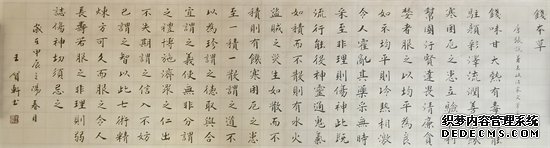 錢本草
錢味甘大熱有毒偏能
駐顏彩澤流潤善療飢
寒困厄之患立驗能利
幫國污賢達畏清廉貪
婪者服之以均平為良
如不均平則冷熱相激
令人霍亂其藥采無時
采至非理則傷神此既
流行能役神靈通鬼氣
如積而不散則有水火盜
賊之災生如散而不
積則有飢寒困厄之患
至一積一散謂之道不
以為珍謂之德取與合
宜謂之義使無非分謂
之禮博施濟眾謂之仁出
不失期謂之信入不妨
已謂之智以此七術精
煉方可久而服之令人
長壽若服之非理則弱
誌傷神切須忌之
歲在甲辰之陽春月
王賀軒書